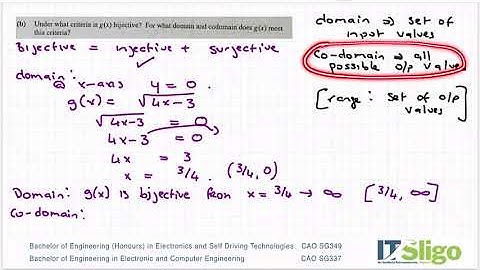 (b) Under what criteria is g(x) bijective? For what domain and codomain does g(x) meet
this criteria?
Bijective = injective + surjective
domain:
@ x-axis y = 0
g(x) = √4x-3
√4x-3 = 0
4x-3 = 0
4x = 3
x = 3/4. (3/4, 0)
Domain: g(x) is bijective from x = 3/4 → ∞ [3/4, ∞)
Co-domain:
domain ⇒ set of
input values
Co-domain ⇒ all
possible o/p value
[range: set of o/p
values]
Bachelor of Engineering (Honours) in Electronics and Self Driving Technologies CAO SG349
Bachelor of Engineering in Electronic and Computer Engineering CAO SG337
IT Sligo